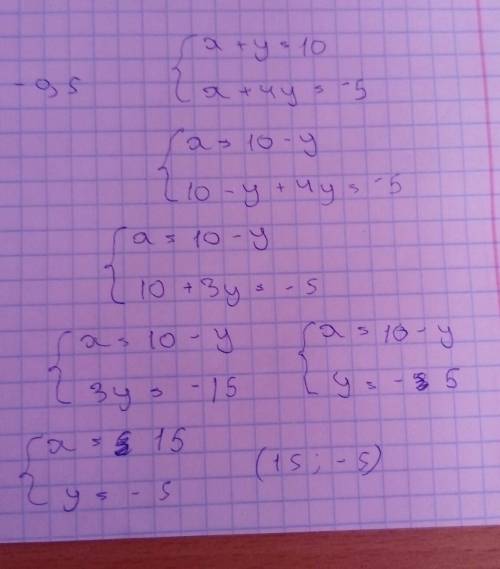 x + y = 10
- 0,5
x + 4y = -5
x = 10 - y
10 - y + 4y = -5
x = 10 - y
10 + 3y = -5
x = 10 - y
3y = -15
x = 10 - y
y = -5
x = 15
y = -5
(15 ; -5)